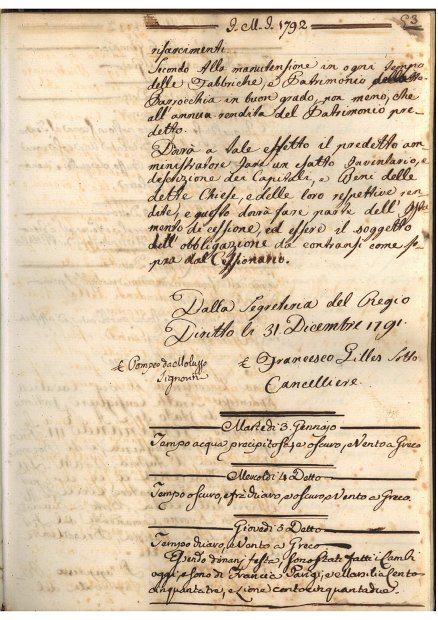 J. M. J. 1792
63
risarcimenti.
Secondo Alla manutensione in ogni tempo
delle Fabbriche, e Patrimonio della
Parrocchia in buon grado, non meno, che
all'annua rendita del Patrimonio pre-
detto.
Dovrà a tale effetto il predetto am-
ministratore fare un esatto Inventario, e
descrizione dei Capitali, e Beni delle
dette Chiese, e delle loro respettive ren-
dite, e questo dovrà fare parte dell'
mento di cessione, ed essere il soggetto
dell'obbligazione da contrarsi come so-
pra dal Cessionario.
Dalla Segreteria del Regio
Diritto li 31 Dicembre 1791.
Pompeo da
Signorini
Francesco Gilles Sotto
Cancelliere.
Martedì 3. Gennajo
Tempo acqua precipitosa, e oscuro, e Vento a Greco
Mercoldì 4 Detto
Tempo oscuro, e oscuro, e Vento a Greco.
Giovedì 5 Detto
Tempo e Vento a Greco
dimani festa, sono state fatti i Cambi
oggi, e sono di Francia Parigi, e Marsilia Cento
cinquantatre, e Lione centocinquantadue.